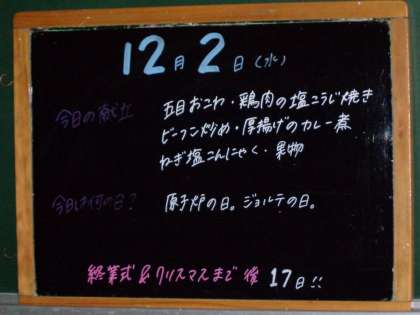 12月2日(水)
今日の献立 五目おこわ・鶏肉の塩こうじ焼き
ビーフン炒め・厚揚げのカレー煮
ねぎ塩こんにゃく・果物
今日は何の日? 原子炉の日。ジョルテの日。
終業式&クリスマスまで後 17日!!